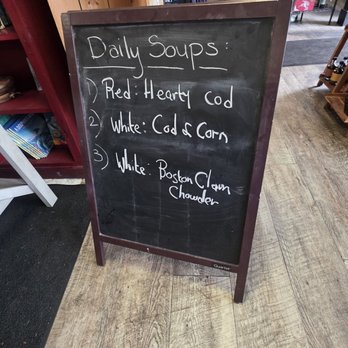 Daily Soups:
1) Red: Hearty Cod
2) White: Cod & Corn
3) White: Boston Clam
Chowder
Quartet